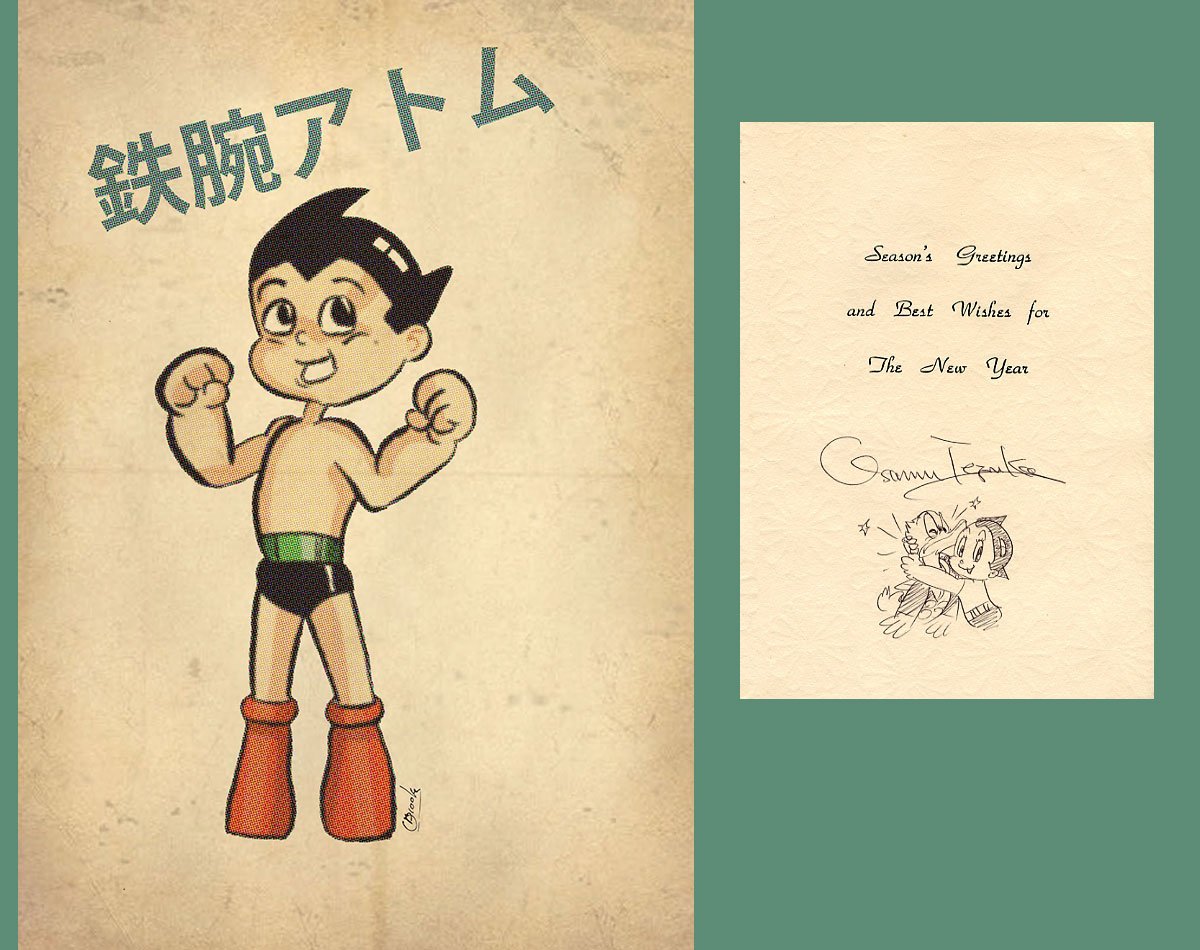 鉄腕アトム
Brook
Season's Greetings
and Best Wishes for
The New Year
Osamu Tezuka